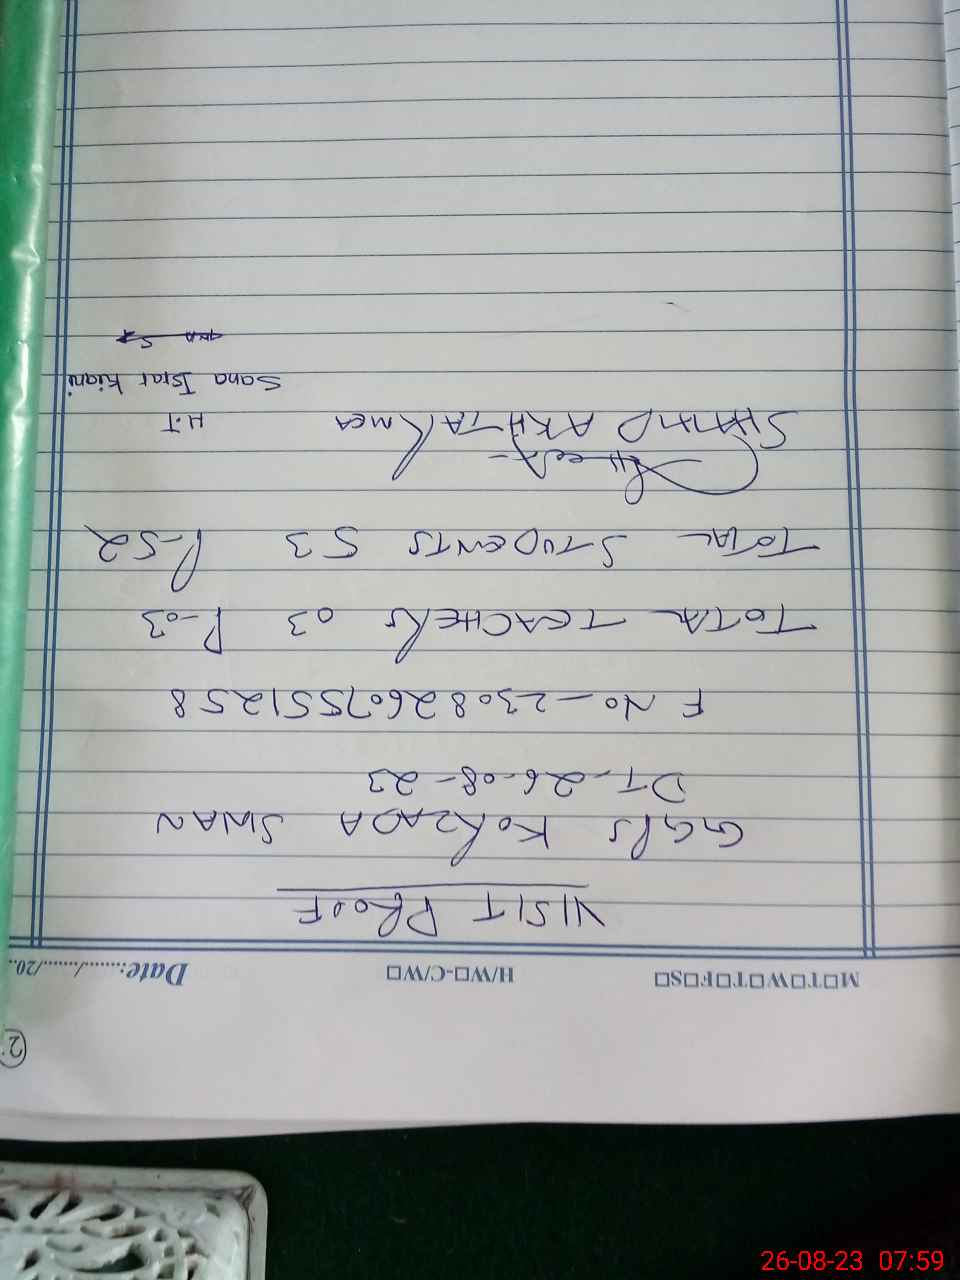 2
M□T□W□T□F□S□ H/W□-C/W□ Date:....../....../20..
VISIT PROOF
GGPS KORZADA SINAN
DT-26-08-23
F No-23082607551258
TOTAL TEACHERS 03 P-03
TOTAL STUDENTS 53 P-52
SHAHID AKHTAR MEA H.T
Sana Israr Kiani
26-08-23 07:59